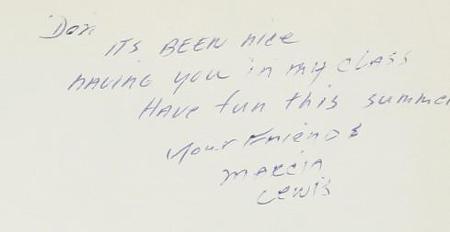 Don
ITS BEEN nice
HAVING you in my CLASS
Have fun this summer
your Friend
MARCIA
Lewis